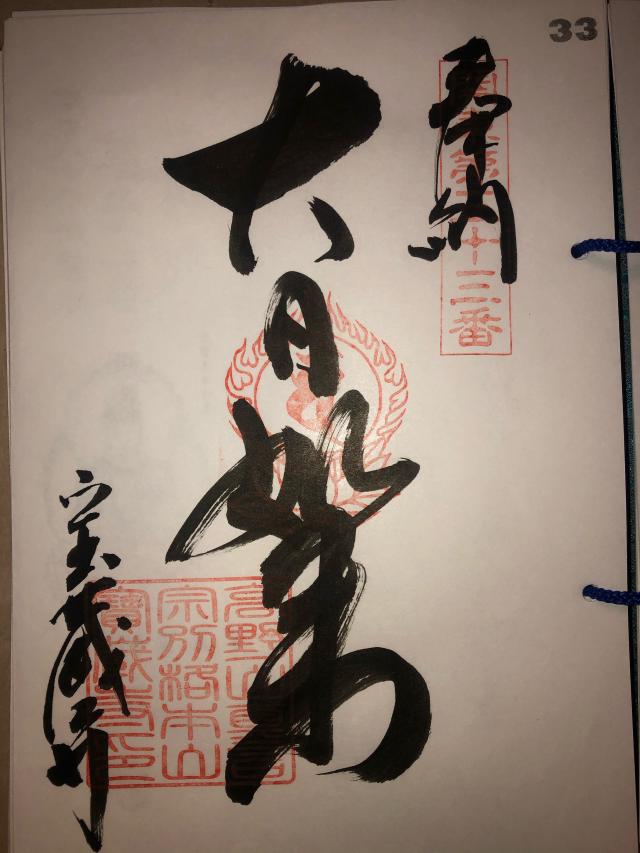 33
奉納
第三十三番
大日如来
宝蔵寺
高野山真言
宗別格本山
寶蔵寺印